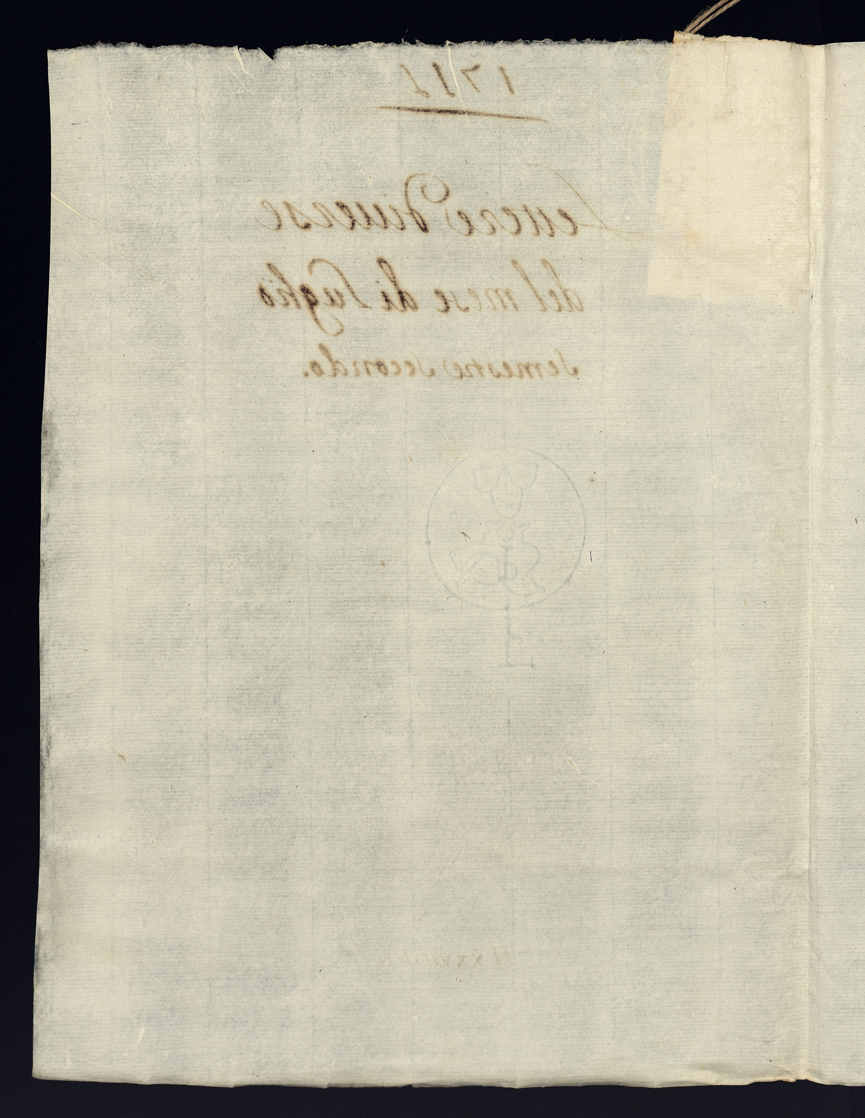 1711
Lettere diuerse
del mese di Luglio
Semestre Secondo.